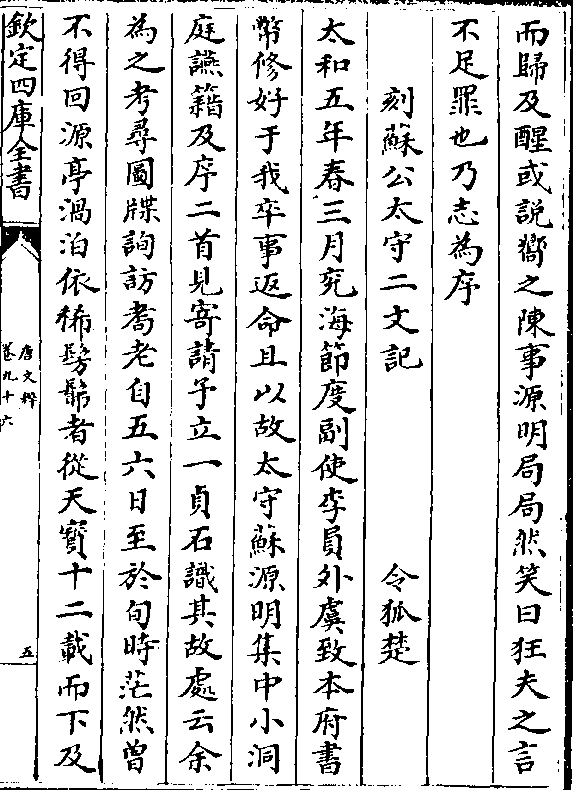 而歸及醒或説嚮之陳事源明局局然笑曰狂夫之言
不足罪也乃志為序
刻蘇公太守二文記 令狐楚
太和五年春三月兖海節度副使李員外虞致本府書
幣修好于我卒事返命且以故太守蘇源明集中小洞
庭讌籍及序二首見寄請予立一貞石識其故處云余
為之考尋圖牒詢訪耆老自五六日至於旬時茫然曾
不得回源亭渦泊依稀髣髴者從天寶十二載而下及
欽定四庫全書
唐文粹
卷九十六
五